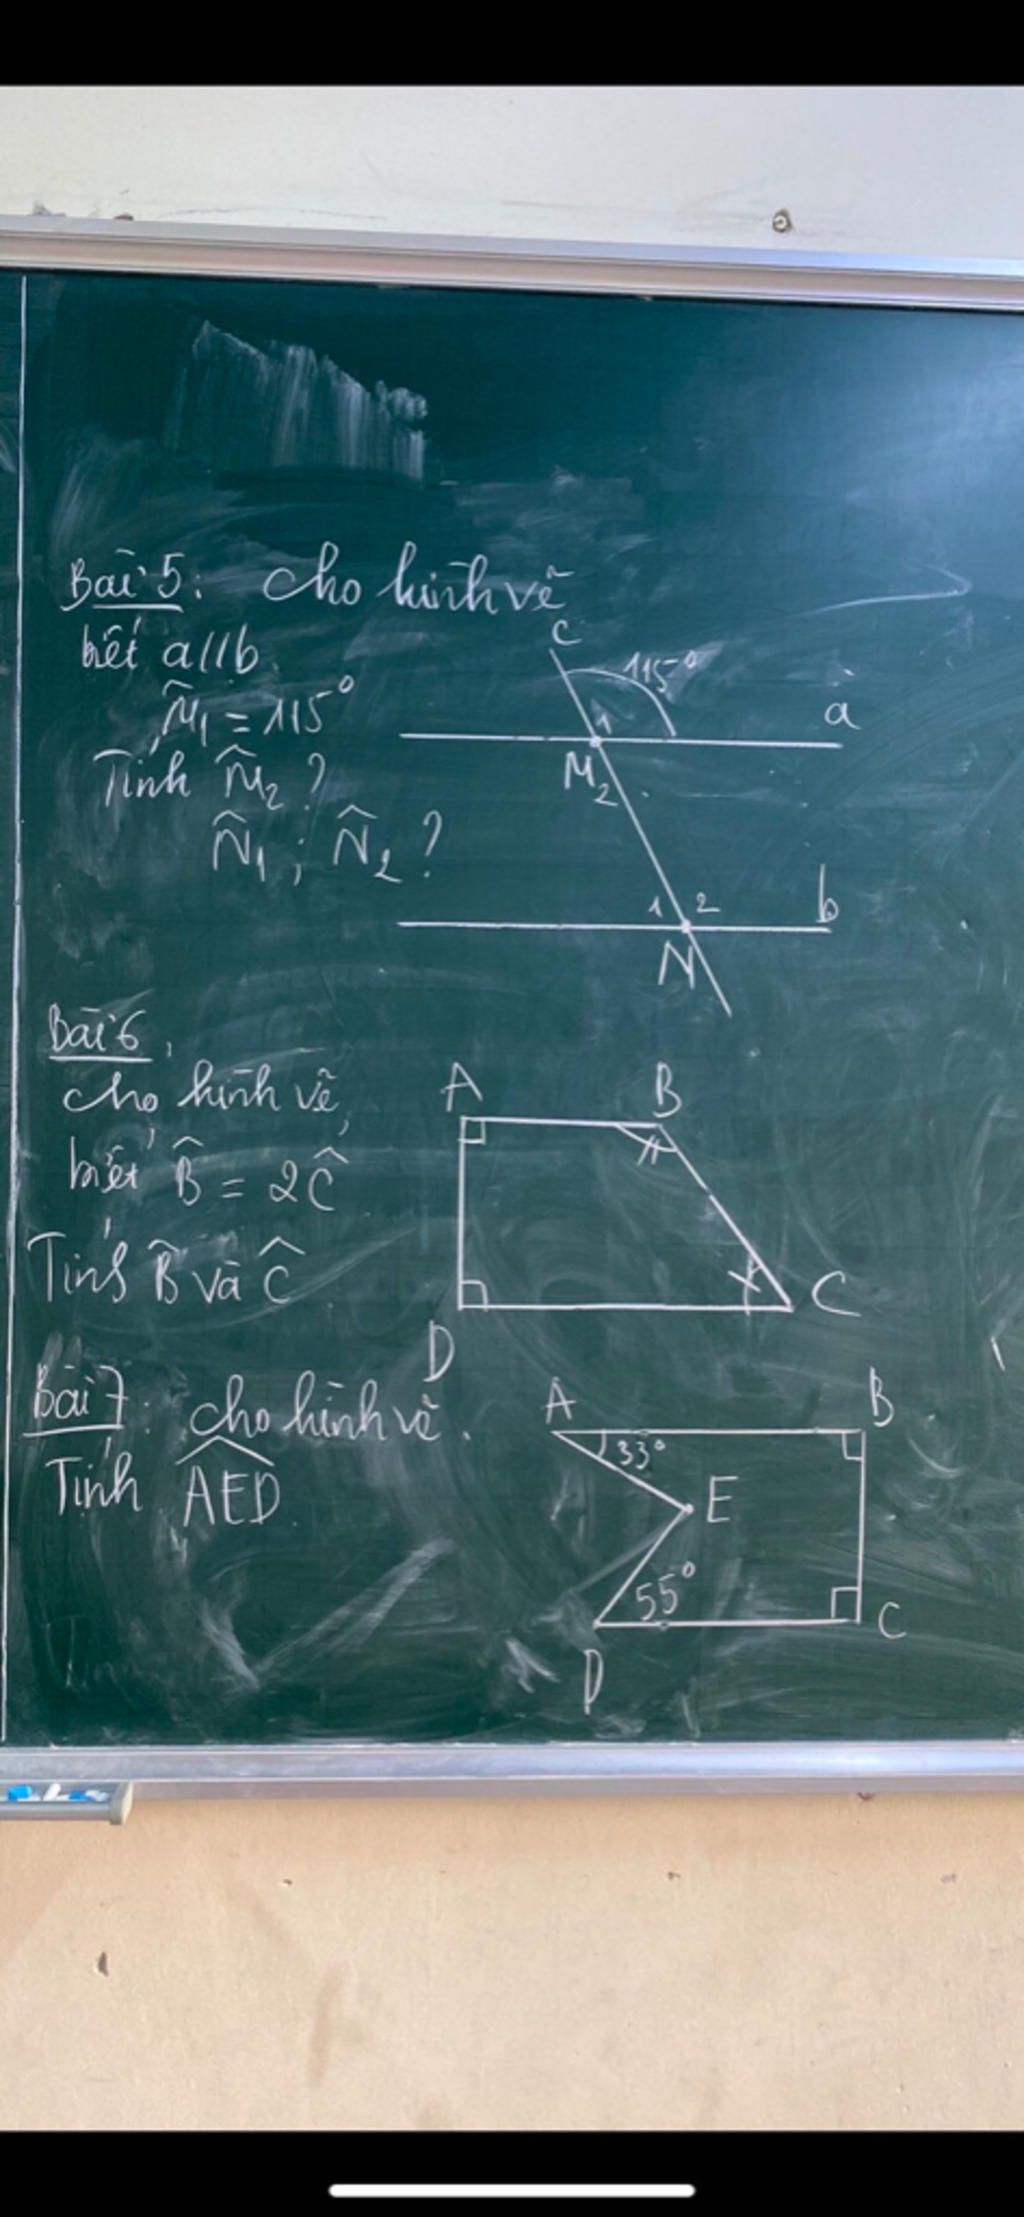 Bài 5: Cho hình vẽ
biết a//b
M̂₁ = 115°
Tính M̂₂ ?
N̂₁ ; N̂₂ ?
c
115°
a
1
M
2
1 2
b
N
Bài 6
Cho hình vẽ
biết B̂ = 2Ĉ
Tính B̂ và Ĉ
A B
D C
Bài 7: Cho hình vẽ.
Tính AED
A B
33°
E
55°
D C